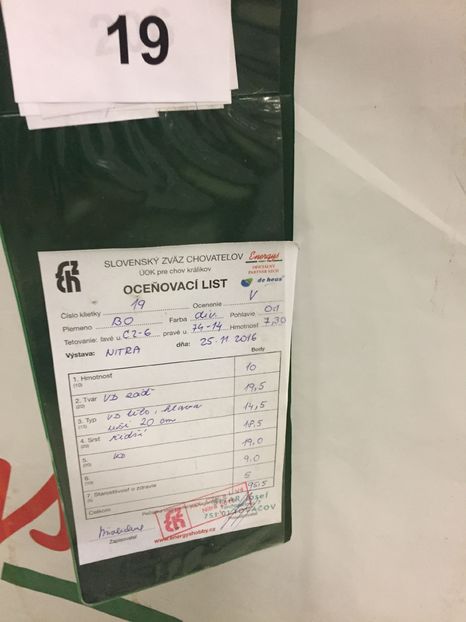 19
SLOVENSKÝ ZVÄZ CHOVATEĽOV
ÚOK pre chov králikov
Energys
OFICIÁLNY
PARTNER SZCH
OCEŇOVACÍ LIST
de heus
Číslo klietky 19 Ocenenie V
Plemeno BO Farba div. Pohlavie 0.1
Tetovanie: ľavé u. CZ-6 pravé u. 74-14 Hmotnosť 7,30
Výstava: NITRA dňa: 25.11.2016
Body
1. Hmotnosť 10
(10)
2. Tvar VD zadź 19,5
(20)
3. Typ VD telo, hlava 14,5
(15) uši 20 cm
4. Srsť redší 18,5
(20)
5. ko 19,0
(20)
6. 9.0
(10)
7. Starostlivosť o zdravie 5
(5)
Celkom 95,5
Zapisovateľ
www.energyshobby.cz